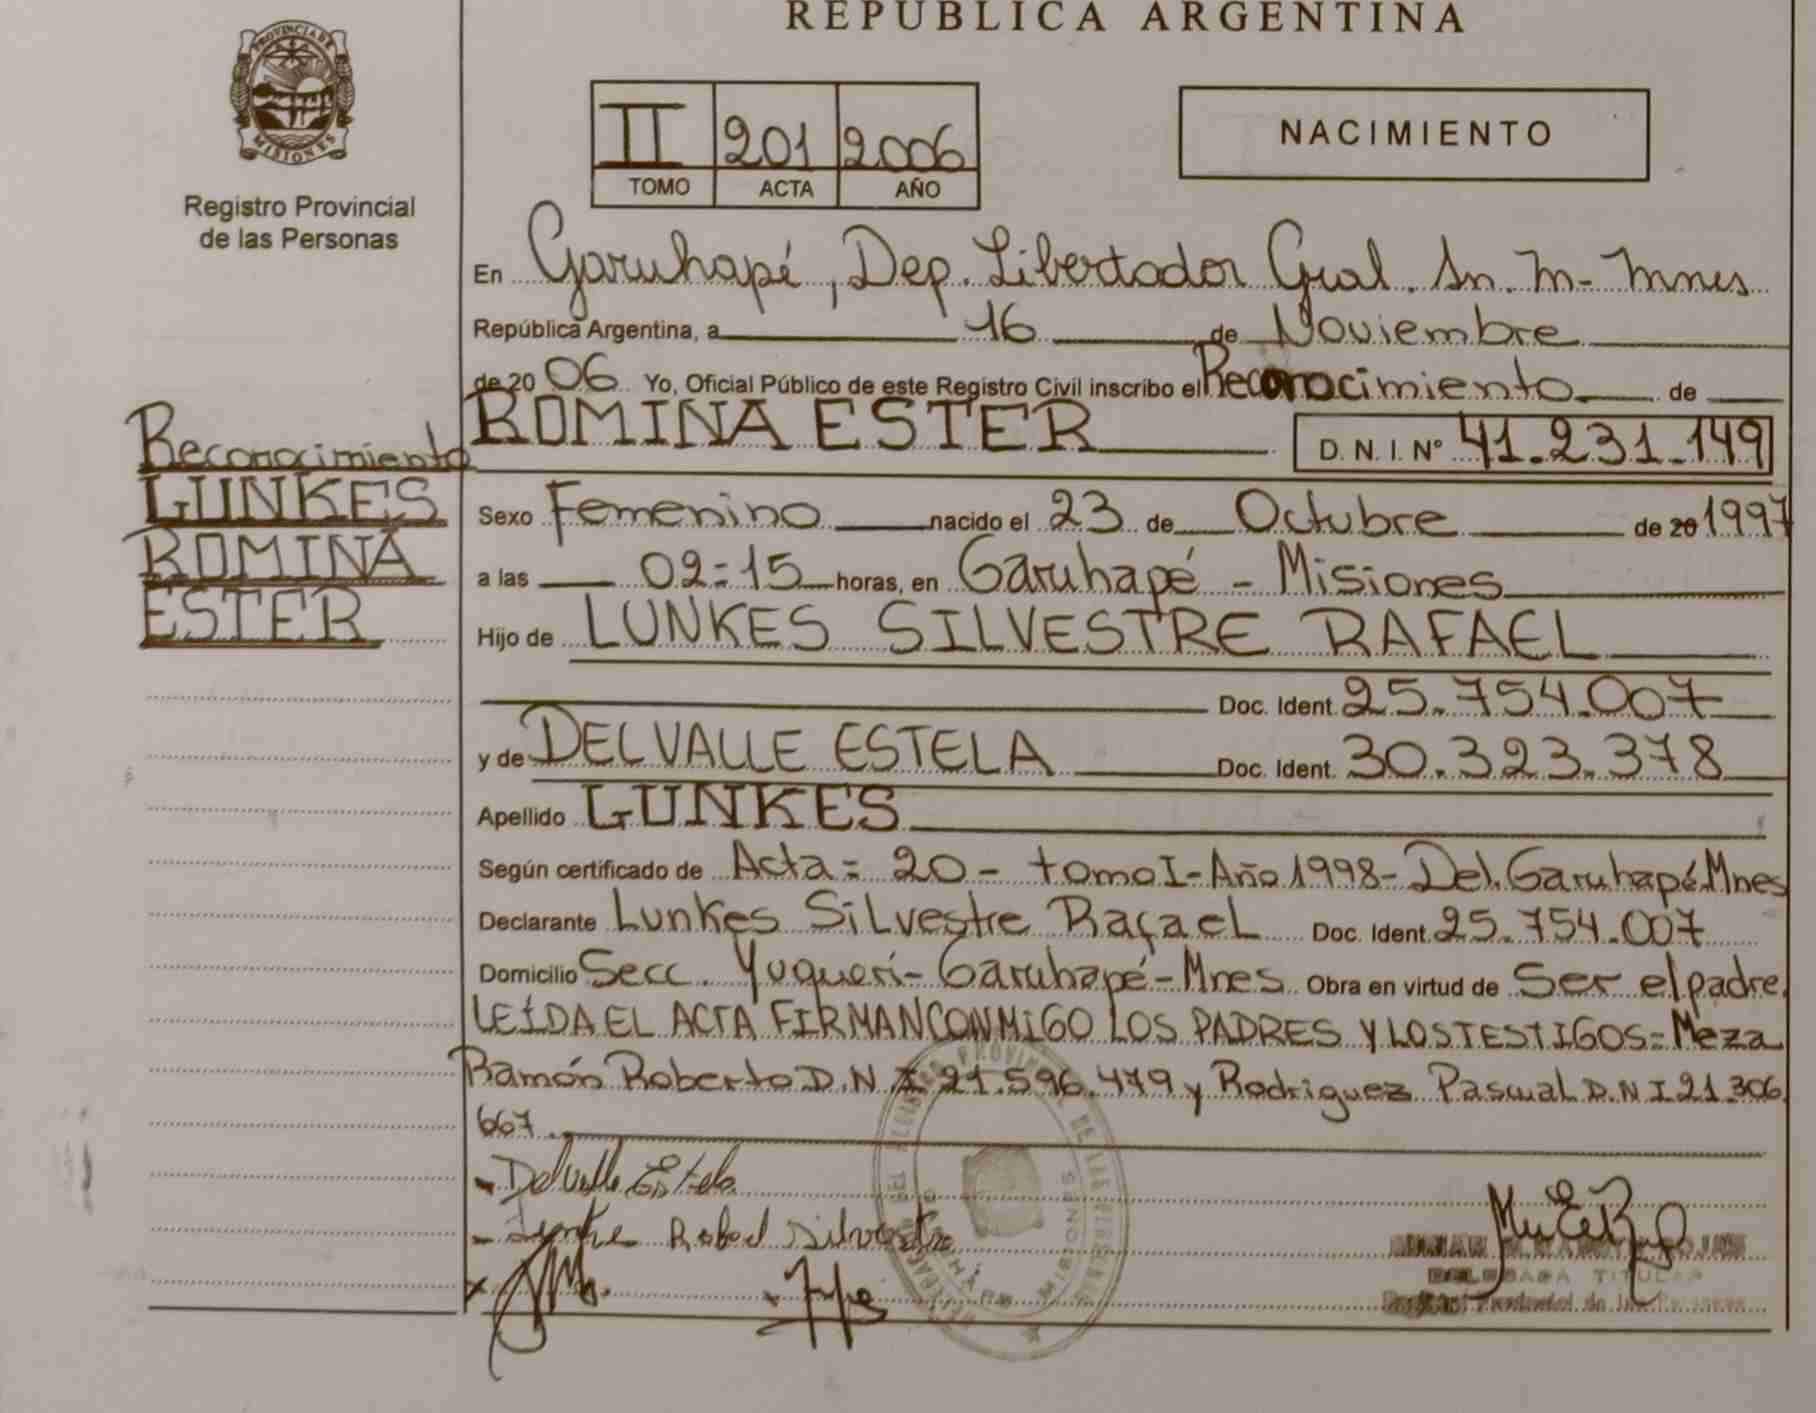 REPÚBLICA ARGENTINA
PROVINCIA DE
MISIONES
Registro Provincial
de las Personas
II 201 2006
TOMO ACTA AÑO
NACIMIENTO
En Garuhapé, Dep. Libertador Gral. Sn. M- Mnes
República Argentina, a 16 de Noviembre
de 20 06 Yo, Oficial Público de este Registro Civil inscribo el Reconocimiento de
ROMINA ESTER D. N. I. Nº 41.231.149
Reconocimiento
LUNKES
ROMINA
ESTER
Sexo Femenino nacido el 23 de Octubre de 20 1997
a las 02:15 horas, en Garuhapé - Misiones
Hijo de LUNKES SILVESTRE RAFAEL
Doc. Ident. 25.754.007
y de DELVALLE ESTELA Doc. Ident. 30.323.378
Apellido LUNKES
Según certificado de Acta = 20 - tomo I - Año 1998 - Del. Garuhapé Mnes
Declarante Lunkes Silvestre Rafael Doc. Ident. 25.754.007
Domicilio Secc. Yuquerí - Garuhapé - Mnes Obra en virtud de Ser el padre.
LEÍDA EL ACTA FIRMAN CONMIGO LOS PADRES Y LOS TESTIGOS = Meza
Ramón Roberto D.N.I 21.596.479 y Rodriguez Pascual D.N I 21.306.
667.
- Delvalle Estela
Rafael Silvestre
DELEGADA TITULAR